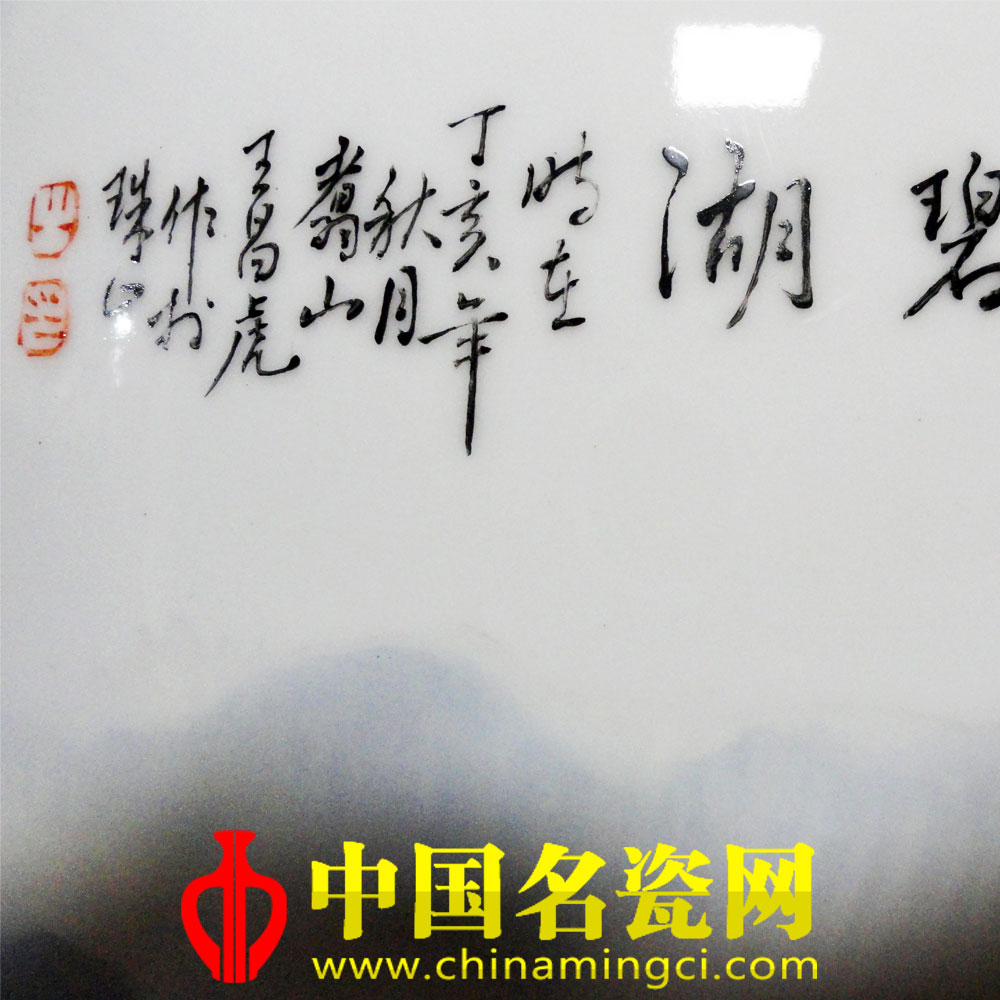 碧
湖
时在
丁亥年
秋月
翥山
王昌虎
作於
珠山
中国名瓷网
www.chinamingci.com